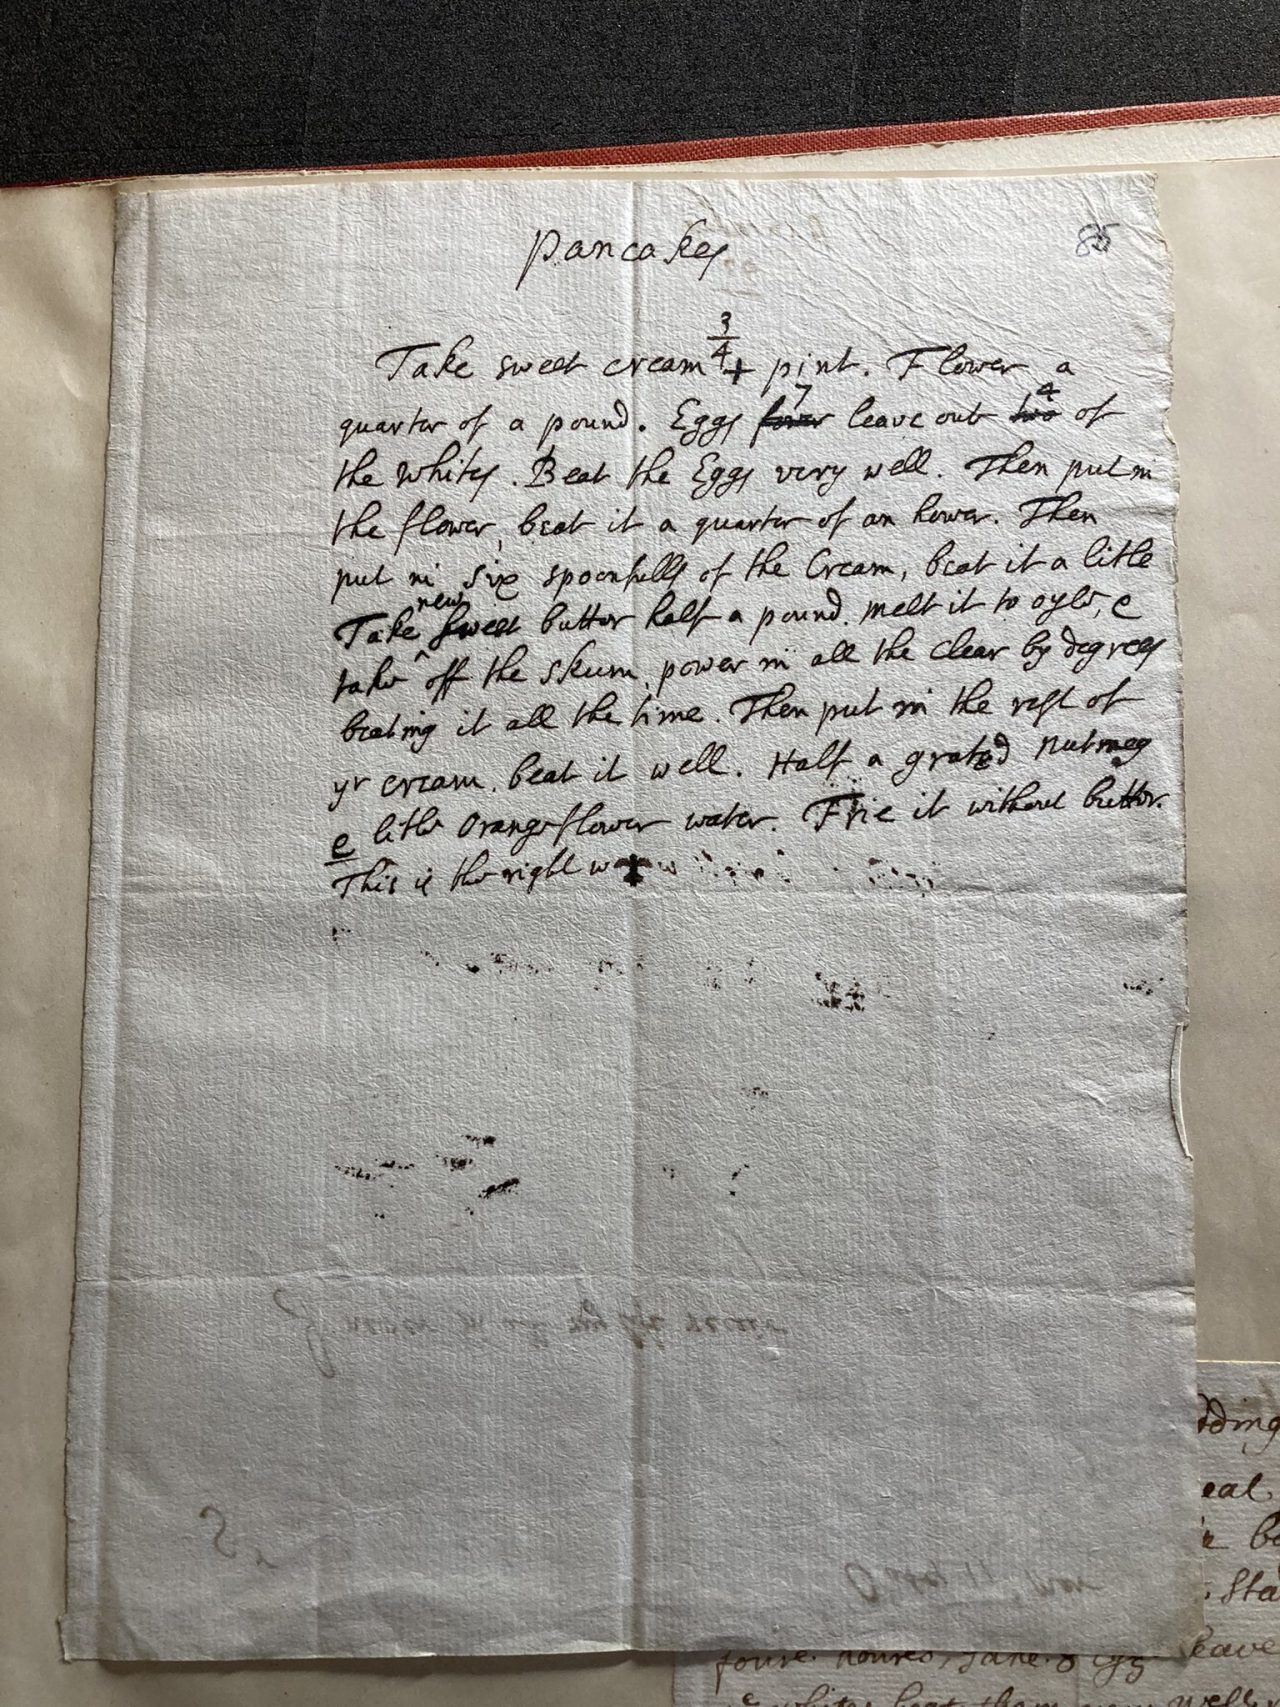 85
Pancakes
Take sweet cream 3/4 + pint. Flower a
quarter of a pound. Eggs four 7 leave out two 4 of
the whites. Beat the Eggs very well. Then put in
the flower, beat it a quarter of an hower. Then
put in six spoonfulls of the Cream, beat it a litle
Take new sweet butter half a pound. melt it to oyle, e
take off the skum, power in all the clear by degrees
beating it all the time. Then put in the rest of
yr cream. beat it well. Half a grated nutmeg
e litle orangeflower water. Frie it without butter.
This is the right way
dding
eal.
Sta
foure houres, take 8 Egg leave
whites beat them very well